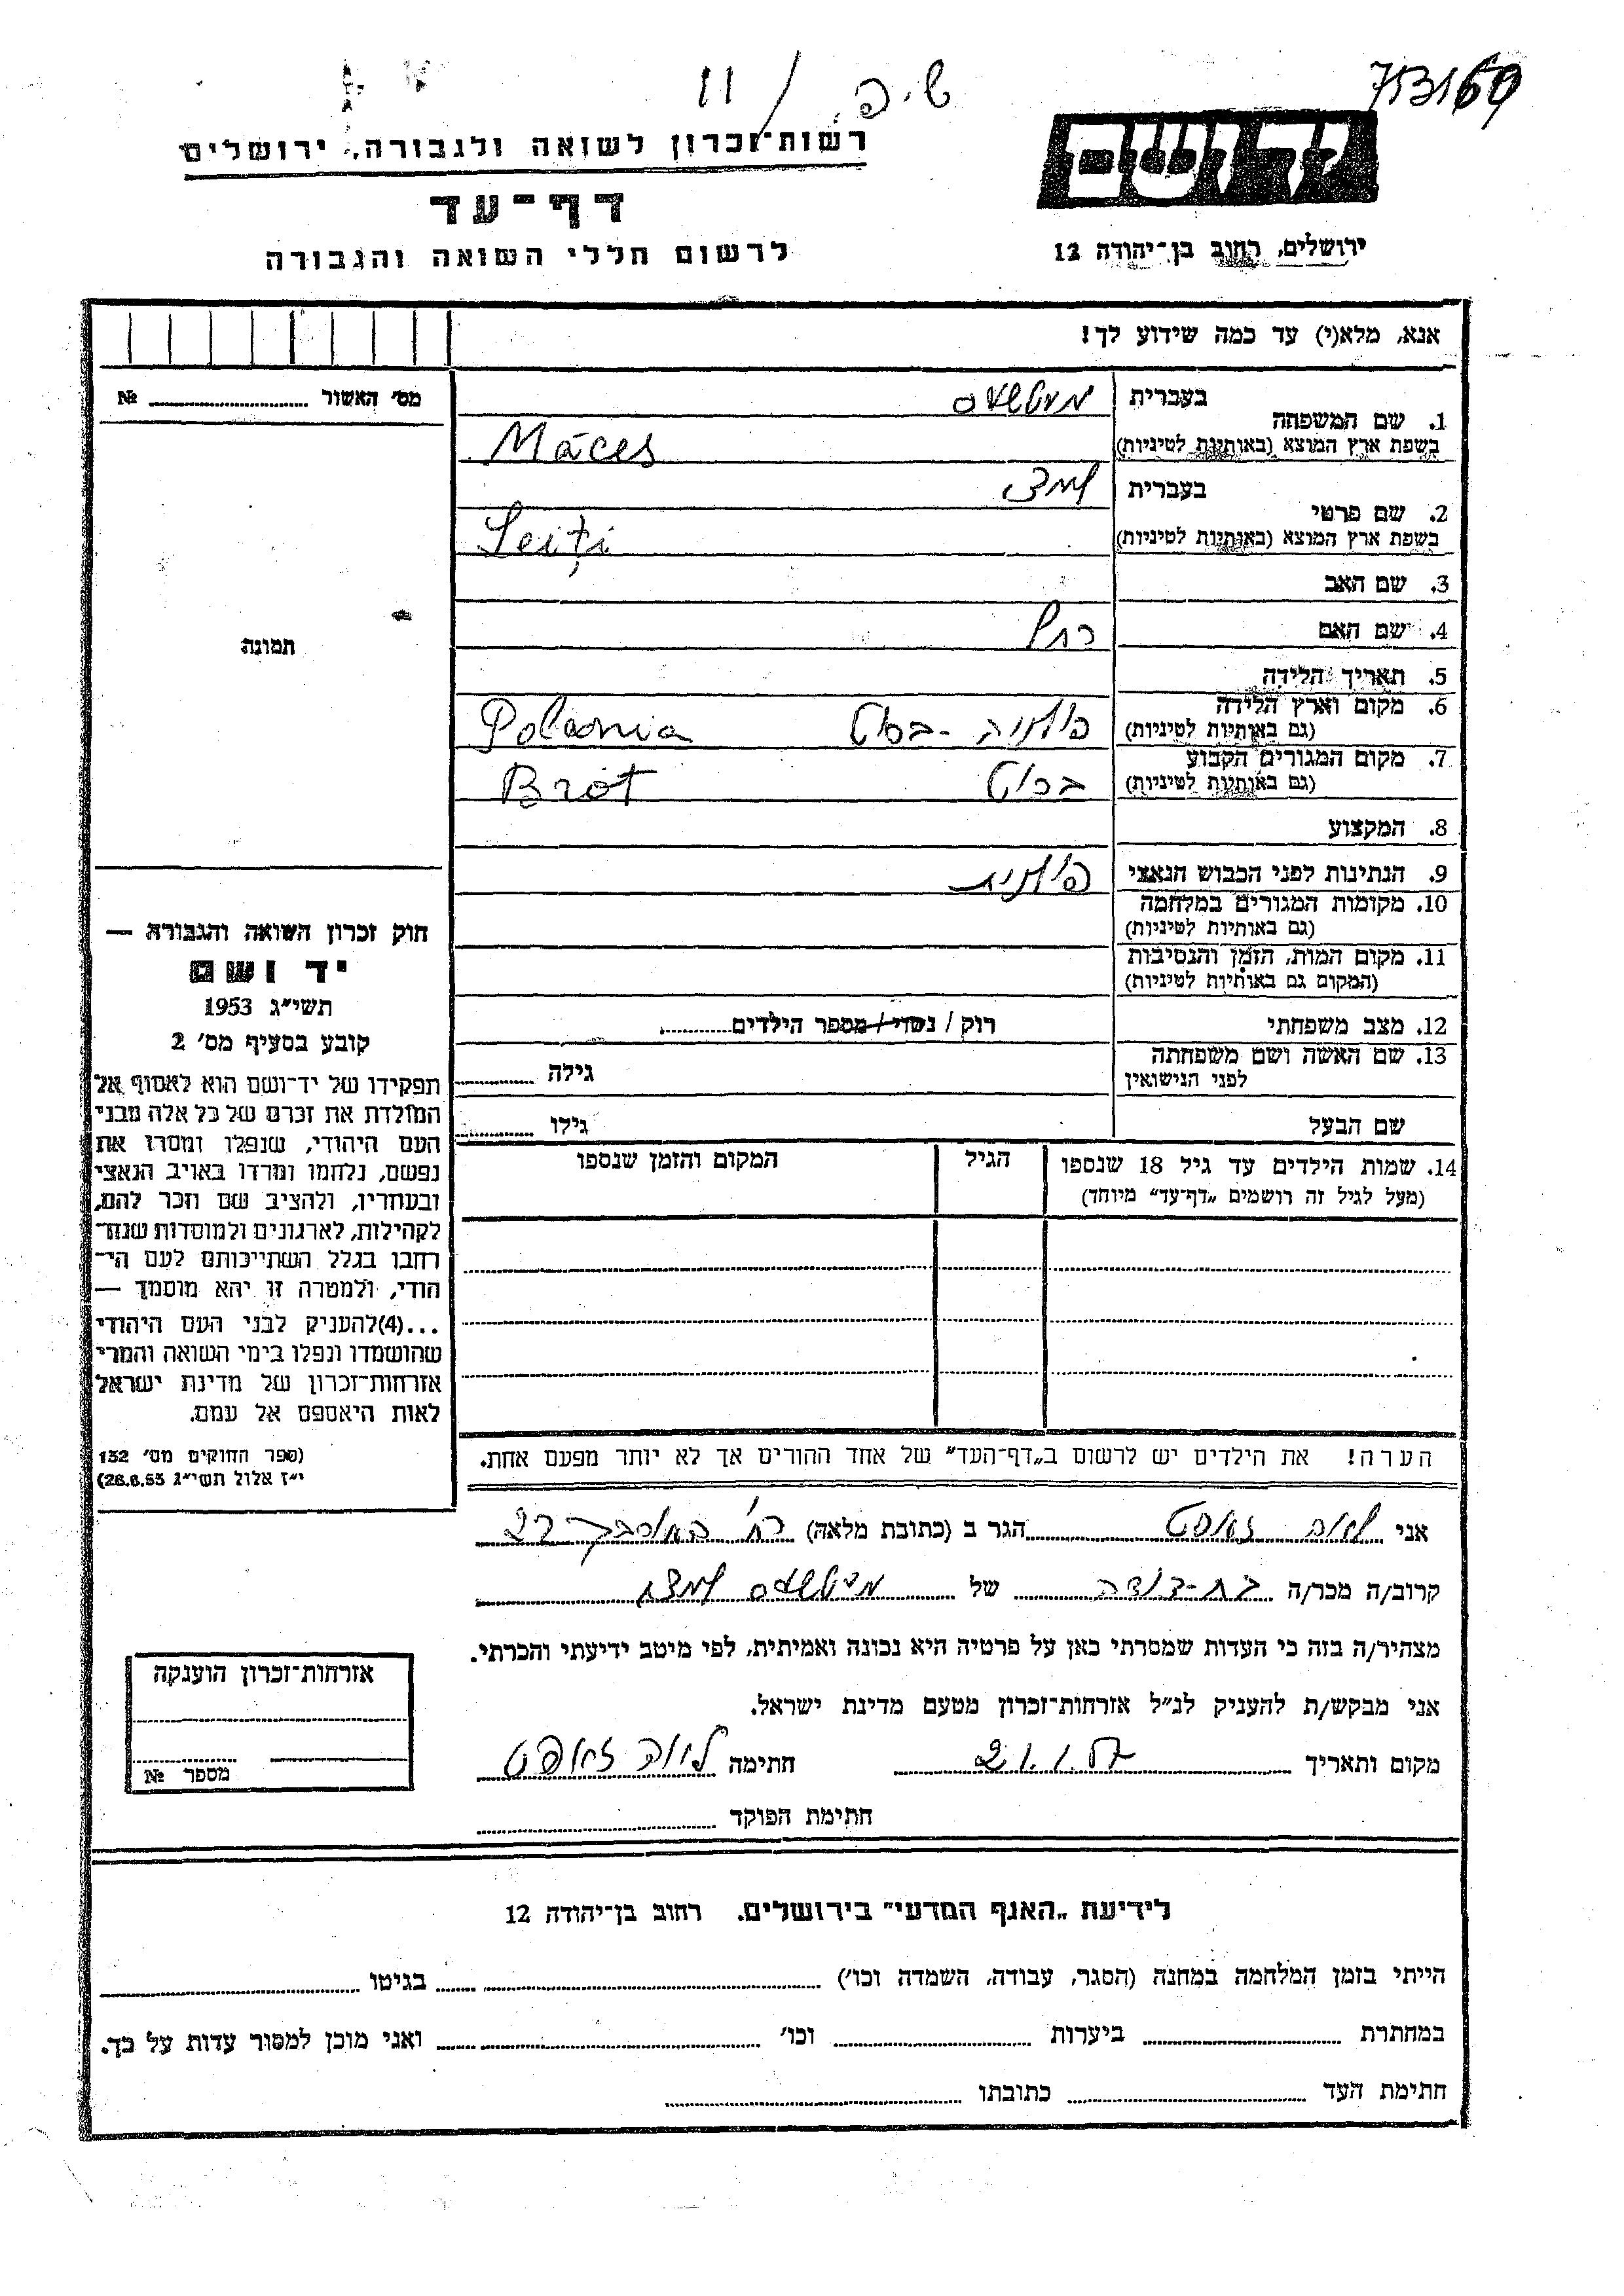 753169
ש.פ. / 11
יד ושם
רשות־זכרון לשואה ולגבורה, ירושלים
דף־עד
לרשום חללי השואה והגבורה
ירושלים, רחוב בן־יהודה 12
אנא, מלא(י) עד כמה שידוע לך!
מס׳ האשור № ............
1. שם המשפחה
בעברית
בשפת ארץ המוצא (באותיות לטיניות) Maces
2. שם פרטי
בעברית
בשפת ארץ המוצא (באותיות לטיניות) Leiți
3. שם האב
4. שם האם רחל
5. תאריך הלידה
6. מקום וארץ הלידה
(גם באותיות לטיניות) פולניה - Polonia
7. מקום המגורים הקבוע
(גם באותיות לטיניות) Brot
8. המקצוע
9. הנתינות לפני הכבוש הנאצי פולנית
10. מקומות המגורים במלחמה
(גם באותיות לטיניות)
11. מקום המות, הזמן והנסיבות
(המקום גם באותיות לטיניות)
12. מצב משפחתי רוק / נשוי / מספר הילדים............
13. שם האשה ושם משפחתה
לפני הנישואין גילה ............
שם הבעל גילו ............
תמונה
14. שמות הילדים עד גיל 18 שנספו
(מעל לגיל זה רושמים „דף־עד״ מיוחד)
הגיל
המקום והזמן שנספו
הערה! את הילדים יש לרשום ב„דף־העד״ של אחד ההורים אך לא יותר מפעם אחת.
חוק זכרון השואה והגבורה —
יד ושם
תשי״ג 1953
קובע בסעיף מס׳ 2
תפקידו של יד־ושם הוא לאסוף אל
המולדת את זכרם של כל אלה מבני
העם היהודי, שנפלו ומסרו את
נפשם, נלחמו ומרדו באויב הנאצי
ובעוזריו, ולהציב שם וזכר להם,
לקהילות, לארגונים ולמוסדות שנח־
רחבו בגלל השתייכותם לעם הי־
הודי, ולמטרה זו יהא מוסמך —
...(4)להעניק לבני העם היהודי
שהושמדו ונפלו בימי השואה והמרי
אזרחות־זכרון של מדינת ישראל
לאות היאספם אל עמם.
(ספר החוקים מס׳ 132
י״ז אלול תשי״ג 26.8.53)
אני ............ הגר ב (כתובת מלאה) רח׳ ............ 22
קרוב/ה מכר/ה בת-דודה של ............
מצהיר/ה בזה כי העדות שמסרתי כאן על פרטיה היא נכונה ואמיתית, לפי מיטב ידיעתי והכרתי.
אני מבקש/ת להעניק לנ״ל אזרחות־זכרון מטעם מדינת ישראל.
מקום ותאריך 21.1.57 חתימה ............
חתימת הפוקד ............
אזרחות־זכרון הוענקה
מספר №
לידיעת „האגף המדעי״ בירושלים. רחוב בן־יהודה 12
הייתי בזמן המלחמה במחנה (הסגר, עבודה, השמדה וכו׳) ............ בגיטו ............
במחתרת ............ ביערות ............ וכו׳ ............ ואני מוכן למסור עדות על כך.
חתימת העד ............ כתובתו ............